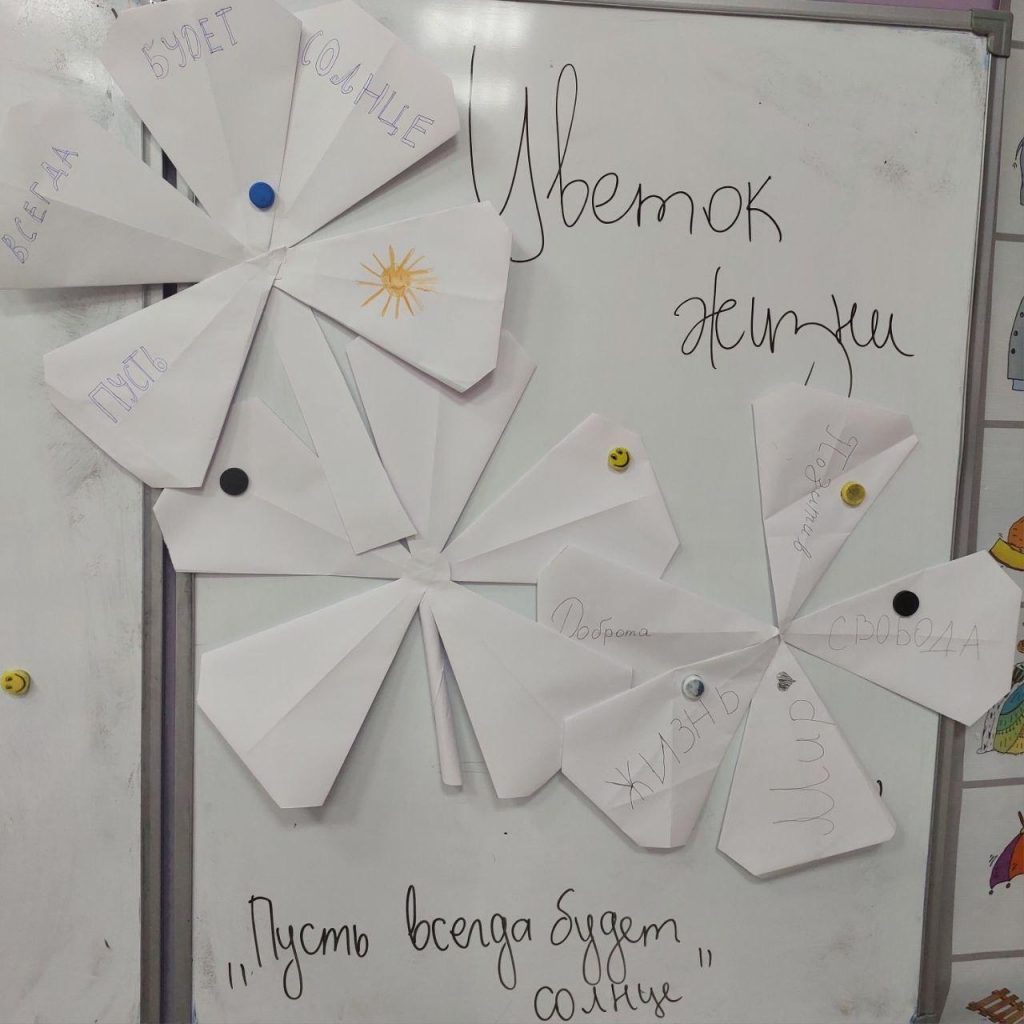 ПУСТЬ
ВСЕГДА
БУДЕТ
СОЛНЦЕ
Цветок
жизни
Позитив
СВОБОДА
Доброта
ЖИЗНЬ
Мир
„Пусть всегда будет
солнце"